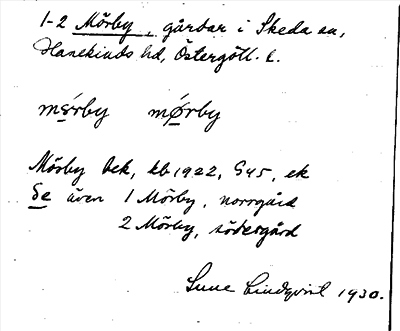 1-2 Mörby, gårdar i Skeda sn,
Hanekinds hd, Östergötl. l.
mǿrby mǿrby
Mörby bek, kb 1922, G45, ek
Se även 1 Mörby, norrgård
2 Mörby, södergård
Sune Lindqvist 1930.